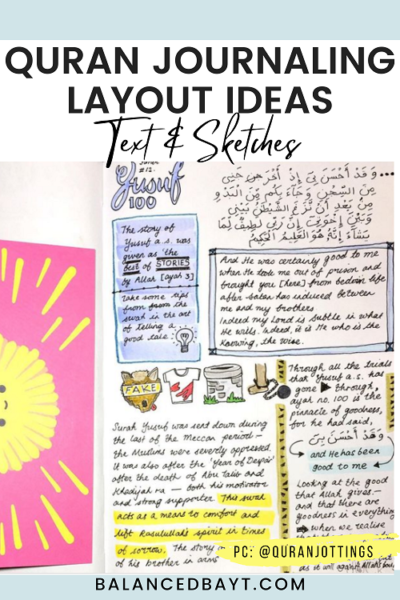 QURAN JOURNALING
LAYOUT IDEAS
Text & Sketches
#12.
Yusuf
100
The story of
Yusuf a.s. was
given as 'the
best of STORIES
by Allah [ayah 3]
Take some tips
from from the
surah in the art
of telling a
good tale:
وَقَدْ أَحْسَنَ بِي إِذْ أَخْرَجَنِي مِنَ
السِّجْنِ وَجَاءَ بِكُم مِّنَ الْبَدْوِ
مِن بَعْدِ أَن نَّزَغَ الشَّيْطَانُ بَيْنِي
وَبَيْنَ إِخْوَتِي إِنَّ رَبِّي لَطِيفٌ لِّمَا
يَشَاءُ إِنَّهُ هُوَ الْعَلِيمُ الْحَكِيمُ
And He was certainly good to me
when He took me out of prison and
brought you [here] from bedouin life
after Satan has induced between
me and my brothers
Indeed my Lord is Subtle in what
He wills. Indeed, it is He who is the
Knowing, the Wise.
FAKE
Surah Yusuf was sent down during
the last of the Meccan period—
the Muslims were severely oppressed.
It was also after the 'Year of Despair'
after the death of Abu Talib and
Khadijah ra — both his motivator
and strong supporter. This surah
acts as a means to comfort and
lift Rasulullah's spirit in times
of sorrow. The story
of his brother in
Through all the trials
that Yusuf a.s. had
gone through,
ayah no. 100 is the
pinnacle of goodness,
for he had said,
وَقَدْ أَحْسَنَ بِي
and He has been
good to me
Looking at the good
that Allah gives—
and that there are
goodness in everything
when we realise
PC: @QURANJOTTINGS
BALANCEDBAYT.COM